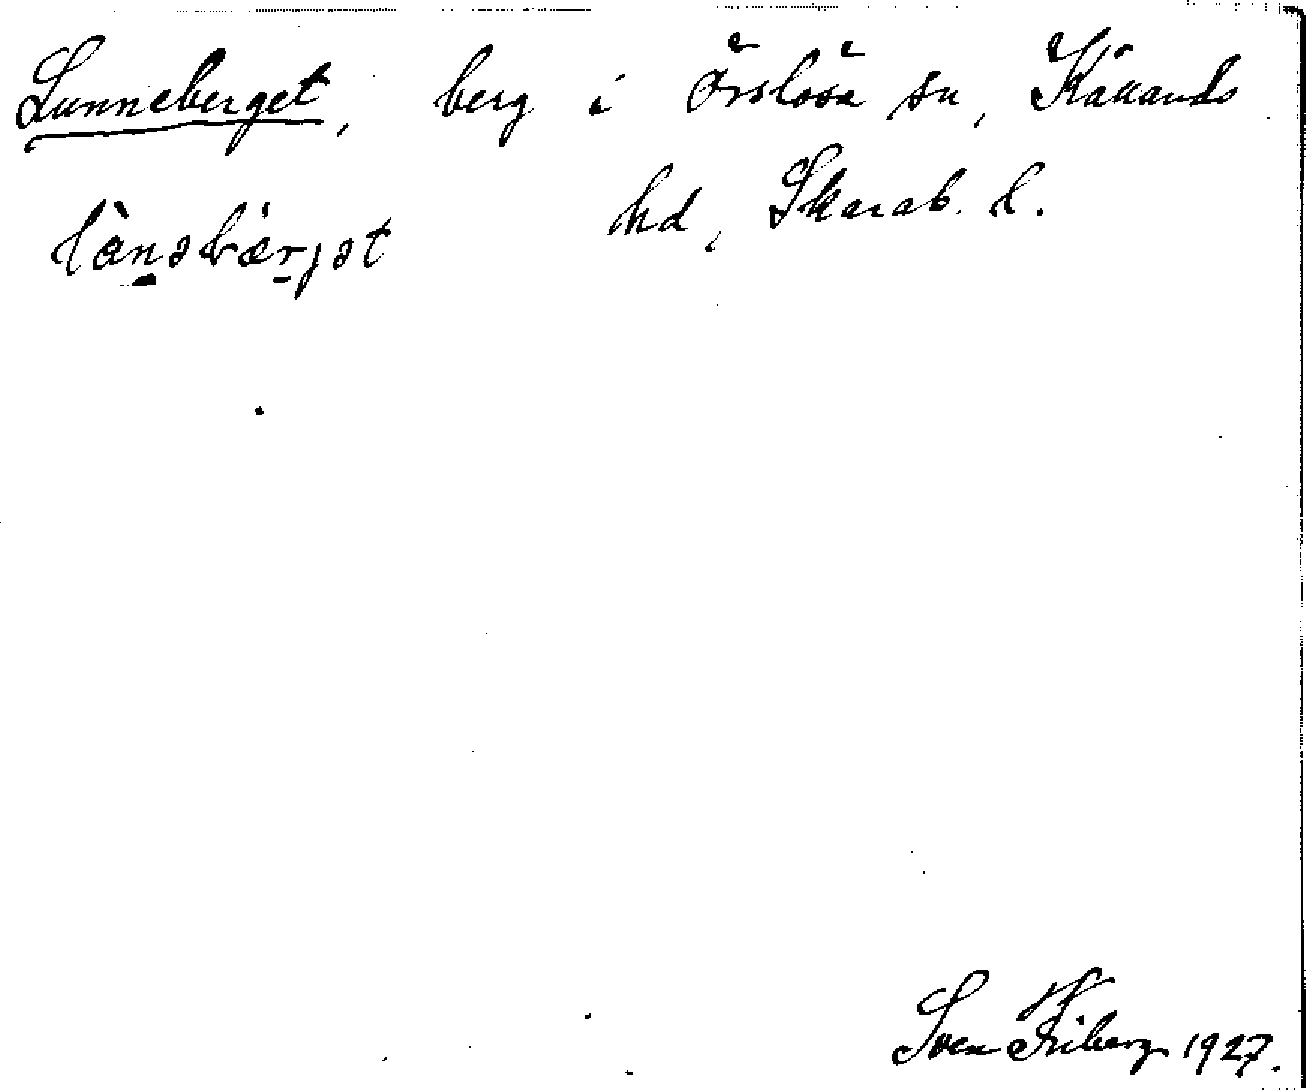 Lunneberget, berg i Örslösa sn, Kållands
hd, Skarab. l.
lànəbárjət
Sven Friberg 1927.